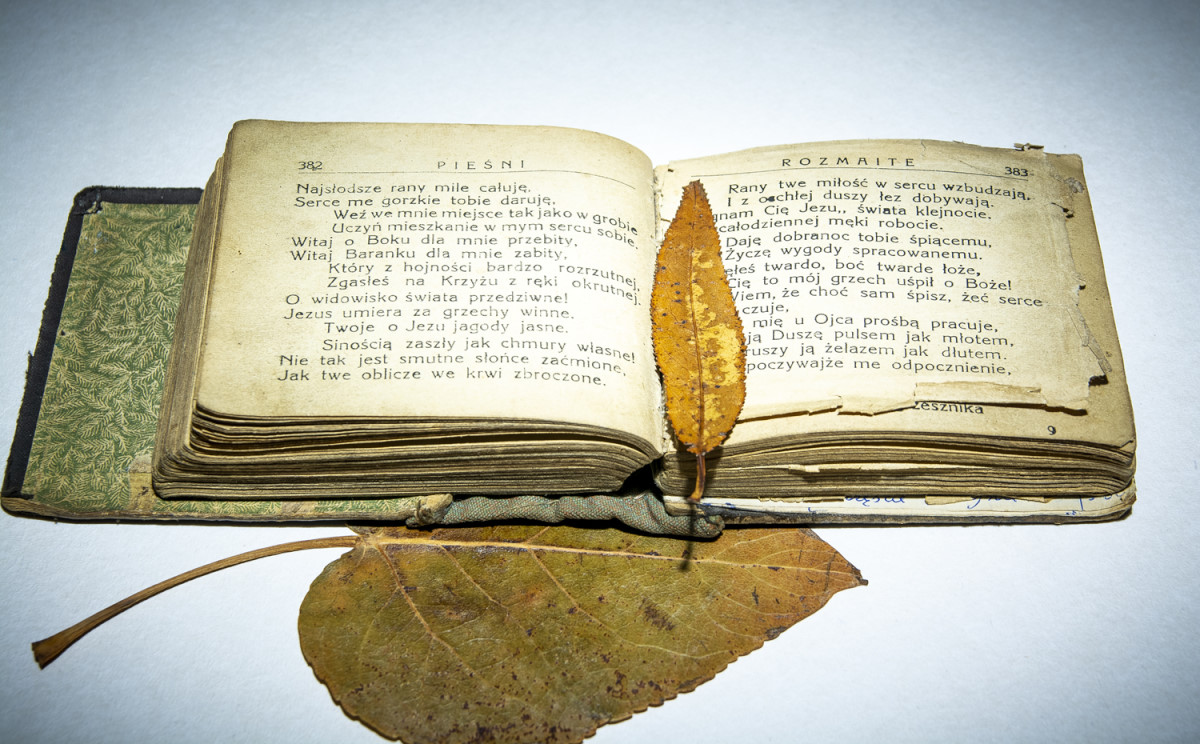 382 PIEŚNI
Najsłodsze rany mile całuję,
Serce me gorzkie tobie daruję,
Weź we mnie miejsce tak jako w grobie
Uczyń mieszkanie w mym sercu sobie.
Witaj o Boku dla mnie przebity,
Witaj Baranku dla mnie zabity,
Który z hojności bardzo rozrzutnej,
Zgasłeś na Krzyżu z ręki okrutnej.
O widowisko świata przedziwne!
Jezus umiera za grzechy winne.
Twoje o Jezu jagody jasne.
Sinością zaszły jak chmury własne!
Nie tak jest smutne słońce zaćmione,
Jak twe oblicze we krwi zbroczone.
ROZMAITE 383
Rany twe miłość w sercu wzbudzają,
I z oschłej duszy łez dobywają.
gnam Cię Jezu,, świata klejnocie.
całodziennej męki robocie.
Daję dobranoc tobie śpiącemu,
Życzę wygody spracowanemu.
ęłeś twardo, boć twarde łoże,
Cię to mój grzech uśpił o Boże!
Wiem, że choć sam śpisz, żeć serce
czuje,
mię u Ojca prośbą pracuje,
ją Duszę pulsem jak młotem,
ruszy ją żelazem jak dłutem.
poczywajże me odpocznienie,
zesznika
9